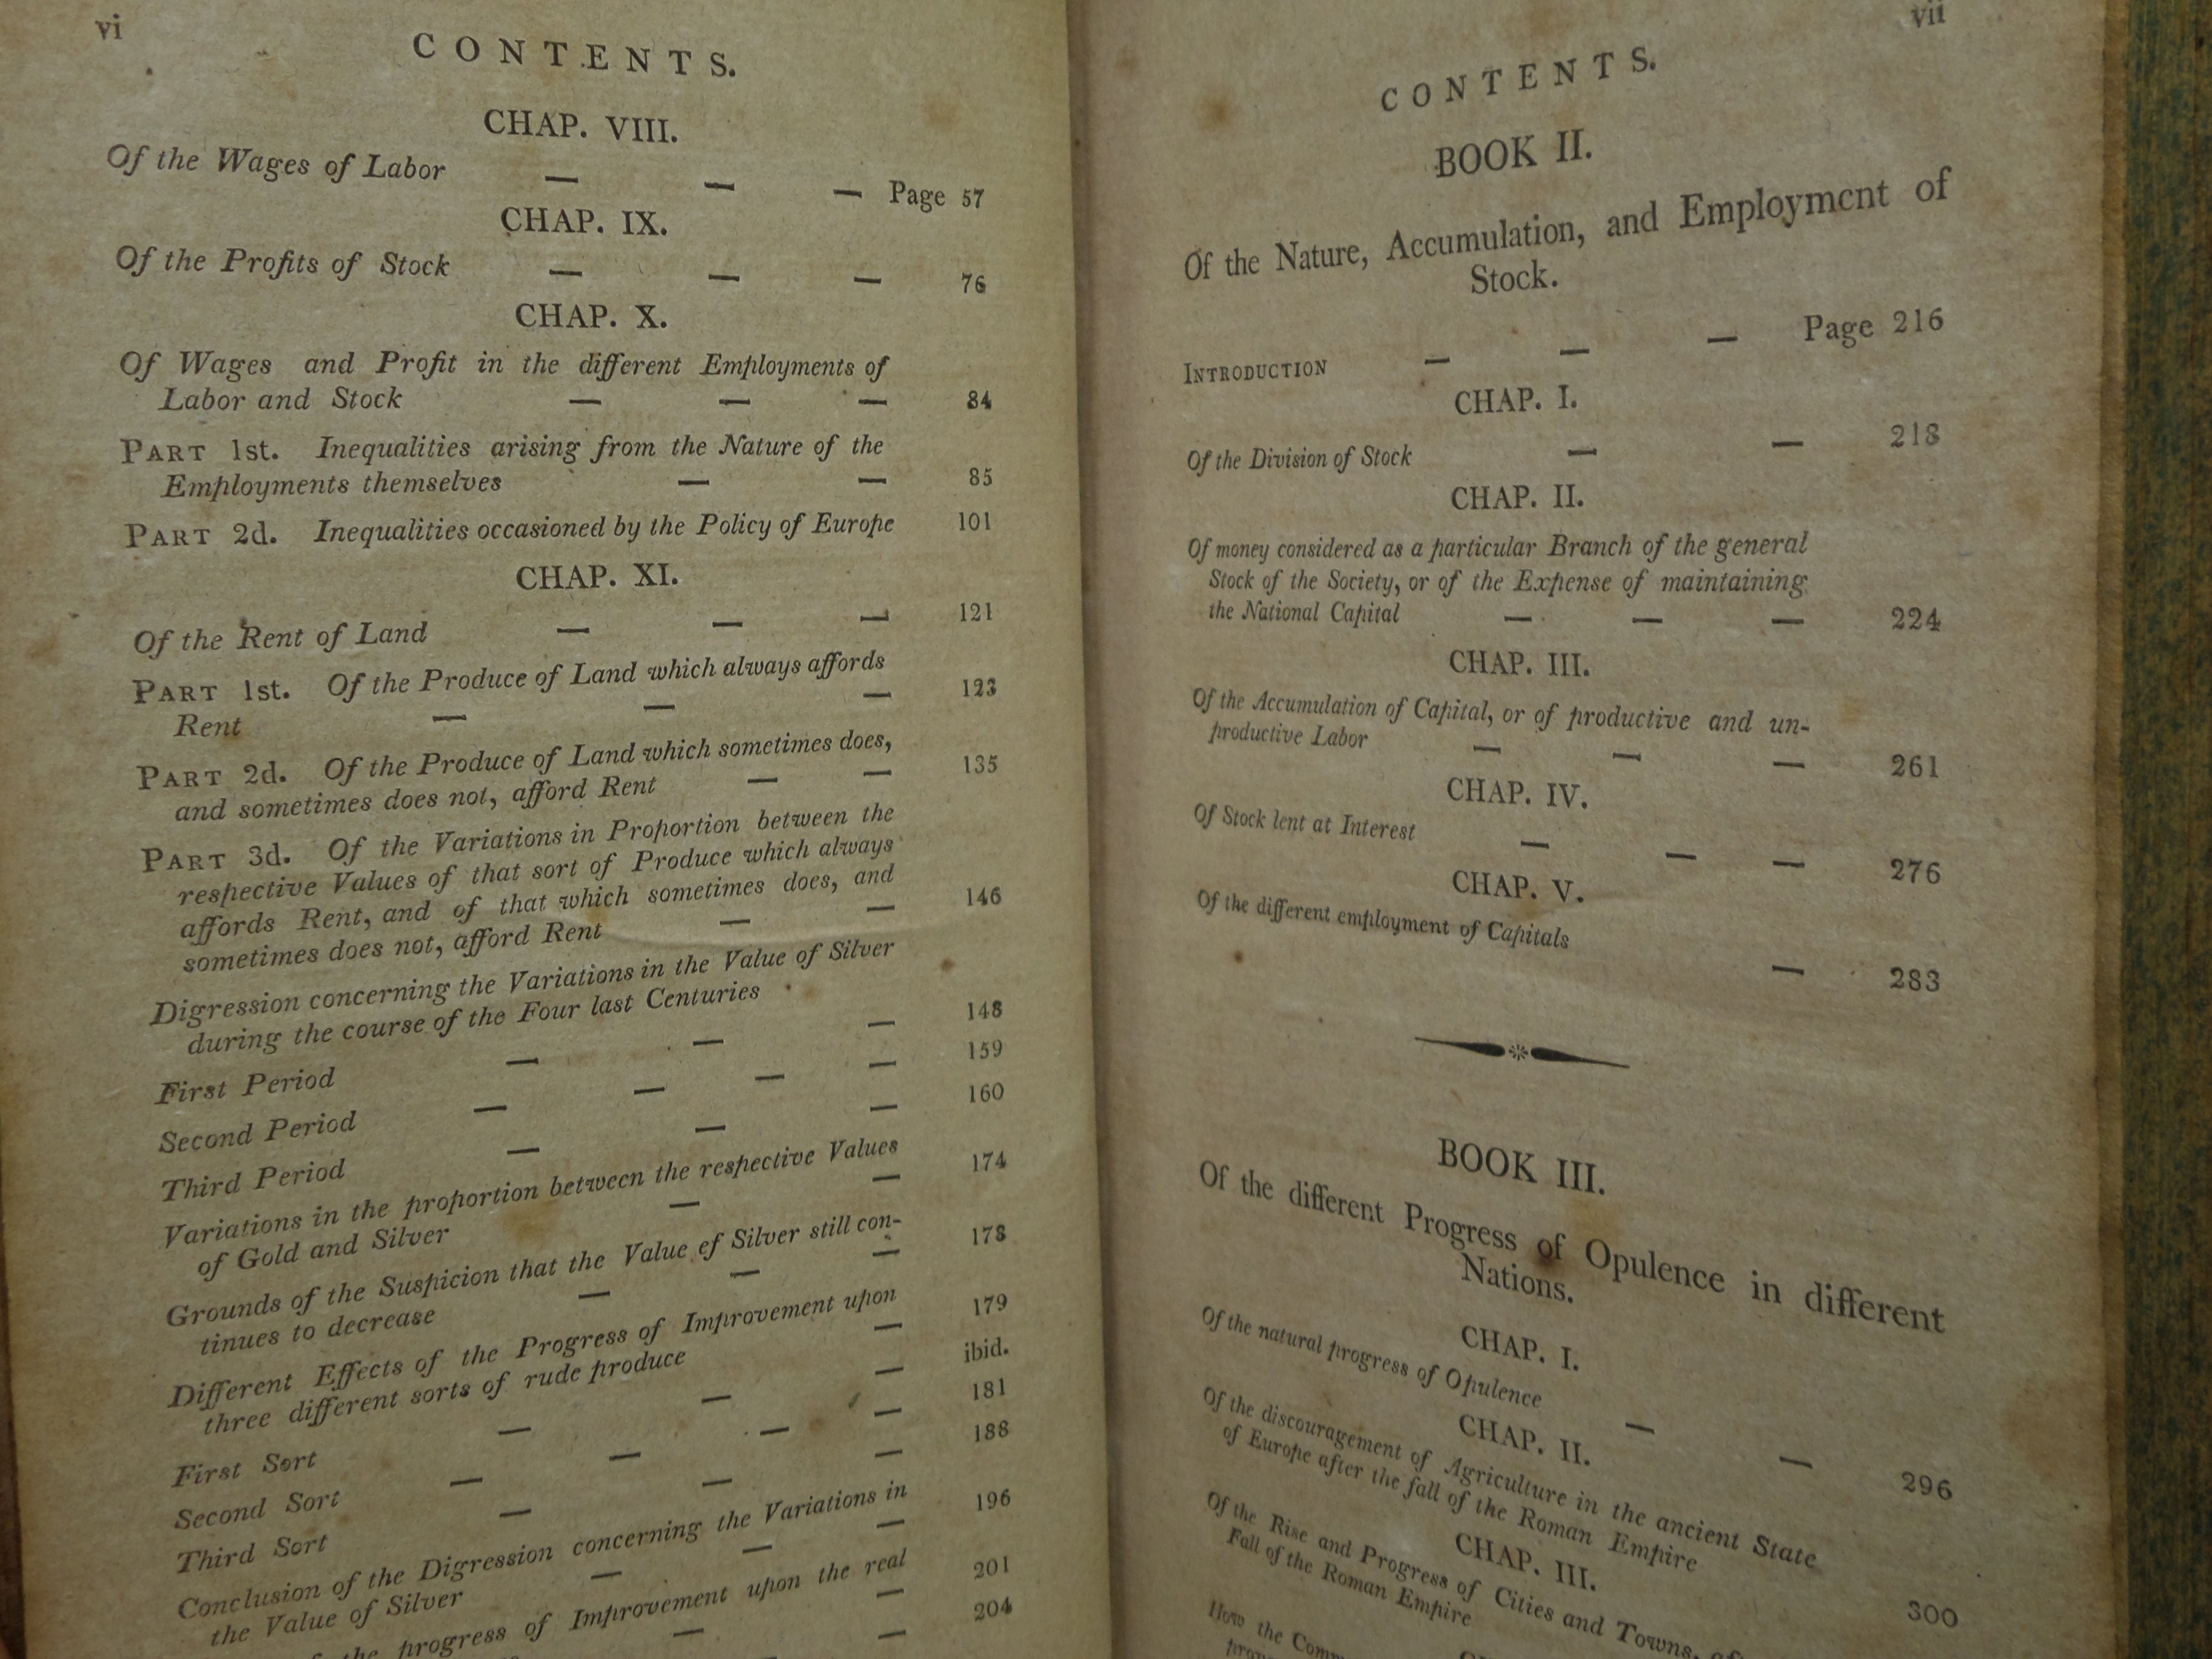 vi
CONTENTS.
CHAP. VIII.
Of the Wages of Labor — — — Page 57
CHAP. IX.
Of the Profits of Stock — — — 76
CHAP. X.
Of Wages and Profit in the different Employments of
Labor and Stock — — — 84
PART 1st. Inequalities arising from the Nature of the
Employments themselves — — 85
PART 2d. Inequalities occasioned by the Policy of Europe 101
CHAP. XI.
Of the Rent of Land — — — 121
PART 1st. Of the Produce of Land which always affords
Rent — — — 123
PART 2d. Of the Produce of Land which sometimes does,
and sometimes does not, afford Rent — — 135
PART 3d. Of the Variations in Proportion between the
respective Values of that sort of Produce which always
affords Rent, and of that which sometimes does, and
sometimes does not, afford Rent — — 146
Digression concerning the Variations in the Value of Silver
during the course of the Four last Centuries
First Period — — — 148
Second Period — — — — 159
Third Period — — — 160
Variations in the proportion between the respective Values
of Gold and Silver — — 174
Grounds of the Suspicion that the Value ef Silver still con-
tinues to decrease — — — 178
Different Effects of the Progress of Improvement upon
three different sorts of rude produce — 179
First Sort — — — ibid.
Second Sort — — — — 181
Third Sort — — — 188
Conclusion of the Digression concerning the Variations in
the Value of Silver — — — 196
the progress of Improvement upon the real
— — 201
— 204
vii
CONTENTS.
BOOK II.
Of the Nature, Accumulation, and Employment of
Stock.
INTRODUCTION — — — Page 216
CHAP. I.
Of the Division of Stock — — 218
CHAP. II.
Of money considered as a particular Branch of the general
Stock of the Society, or of the Expense of maintaining
the National Capital — — — 224
CHAP. III.
Of the Accumulation of Capital, or of productive and un-
productive Labor — — — 261
CHAP. IV.
Of Stock lent at Interest — — — 276
CHAP. V.
Of the different employment of Capitals — 283
BOOK III.
Of the different Progress of Opulence in different
Nations.
CHAP. I.
Of the natural progress of Opulence — — 296
CHAP. II.
Of the discouragement of Agriculture in the ancient State
of Europe after the fall of the Roman Empire 300
CHAP. III.
Of the Rise and Progress of Cities and Towns,
Fall of the Roman Empire
How the